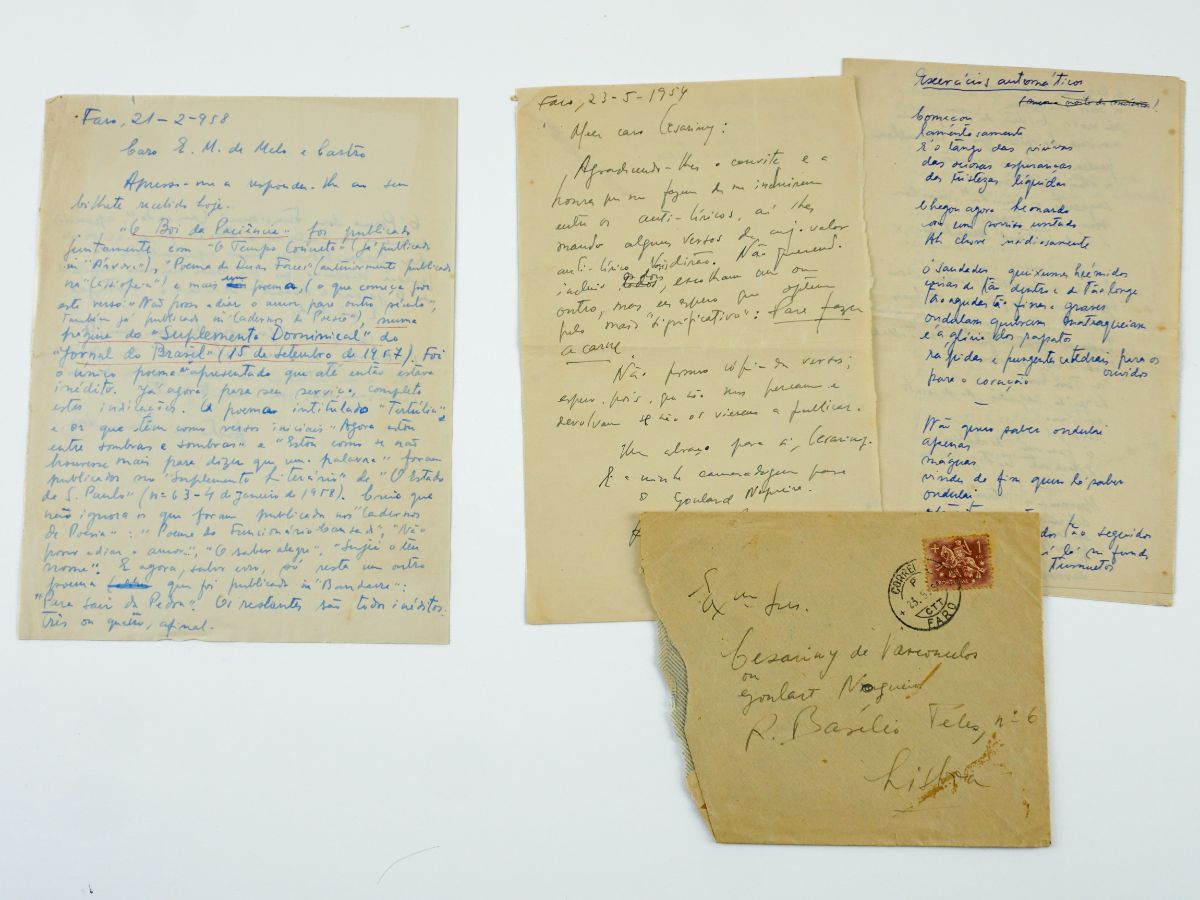 Faro, 21-2-958
Caro E. M. de Melo e Castro
Apresso-me a responder-lhe ao seu
bilhete recebido hoje.
"O Boi da Paciência" foi publicado
juntamente com "O Tempo Concreto" (já publicado
in "Árvore"), "Poema de Duas Faces" (anteriormente publicado
na "Cassiopeia") e mais um poema, (o que começa por
este verso: "Não posso adiar o amor para outro século",
também já publicado in "Cadernos de Poesia"), numa
página do "Suplemento Dominical" do
"Jornal do Brasil" (15 de Setembro de 1957). Foi
o único poema apresentado que até então estava
inédito. Já agora, para seu serviço, completo
estas indicações. O poema intitulado "Tertúlia"
e os que têm como versos iniciais "Agora estou
entre sombras e sombras" e "Estou como se não
houvesse mais para dizer que uma palavra" foram
publicados no "Suplemento Literário" de "O Estado
de S. Paulo" (nº 63-4 de Janeiro de 1958). Creio que
não ignora os que foram publicados nos "Cadernos
de Poesia": "Poema do Funcionário Cansado", "Não
posso adiar o amor..", "O saber alegre", "Surgiu o teu
nome". E agora, salvo erro, só resta um outro
poema que foi publicado in "Bandarra":
"Para sair da Pedra". Os restantes são todos inéditos.
três ou quatro, afinal.
Faro, 23-5-1954
Meu caro Cesariny:
Agradecendo-lhes o convite e a
honra que me fazem de me incluírem
entre os anti-líricos, aí lhes
mando alguns versos de cujo valor
anti-lírico Vs dirão. Não querendo
incluir os dois, escolham um ou
outro, mas eu espero que optem
pelo mais "significativo": Para fazer
a carne
Não possuo cópia dos versos;
espero, pois, que não mos percam e
devolvam se não os vierem a publicar.
Um abraço para si, Cesariny.
E a minha camaradagem para
o Goulart Nogueira.
Exercícios automáticos
Começou
lamentosamente
É o tango das viúvas
das ociosas esperanças
das tristezas líquidas
Chegou agora Leonardo
com um sorriso untado
Ah chove insidiosamente
Ó saudades queixumes
coisas de tão dentro e de tão longe
tão agudas tão finas e graves
ondulam quebram
é a glória dos sapatos
rápidas e pungentes catedrais para os
ouvidos
para o coração
—
Não quero saber ondulei
apenas
mágoas
vindas do fim quem lá sabe
ondulei
tão seguidos
lá no fundo
Exmos Snrs.
Cesariny de Vasconcelos
ou
Goulart Nogueira
R. Basílio Teles, nº 6
Lisboa
CORREI
23.5
CTT
FARO
1